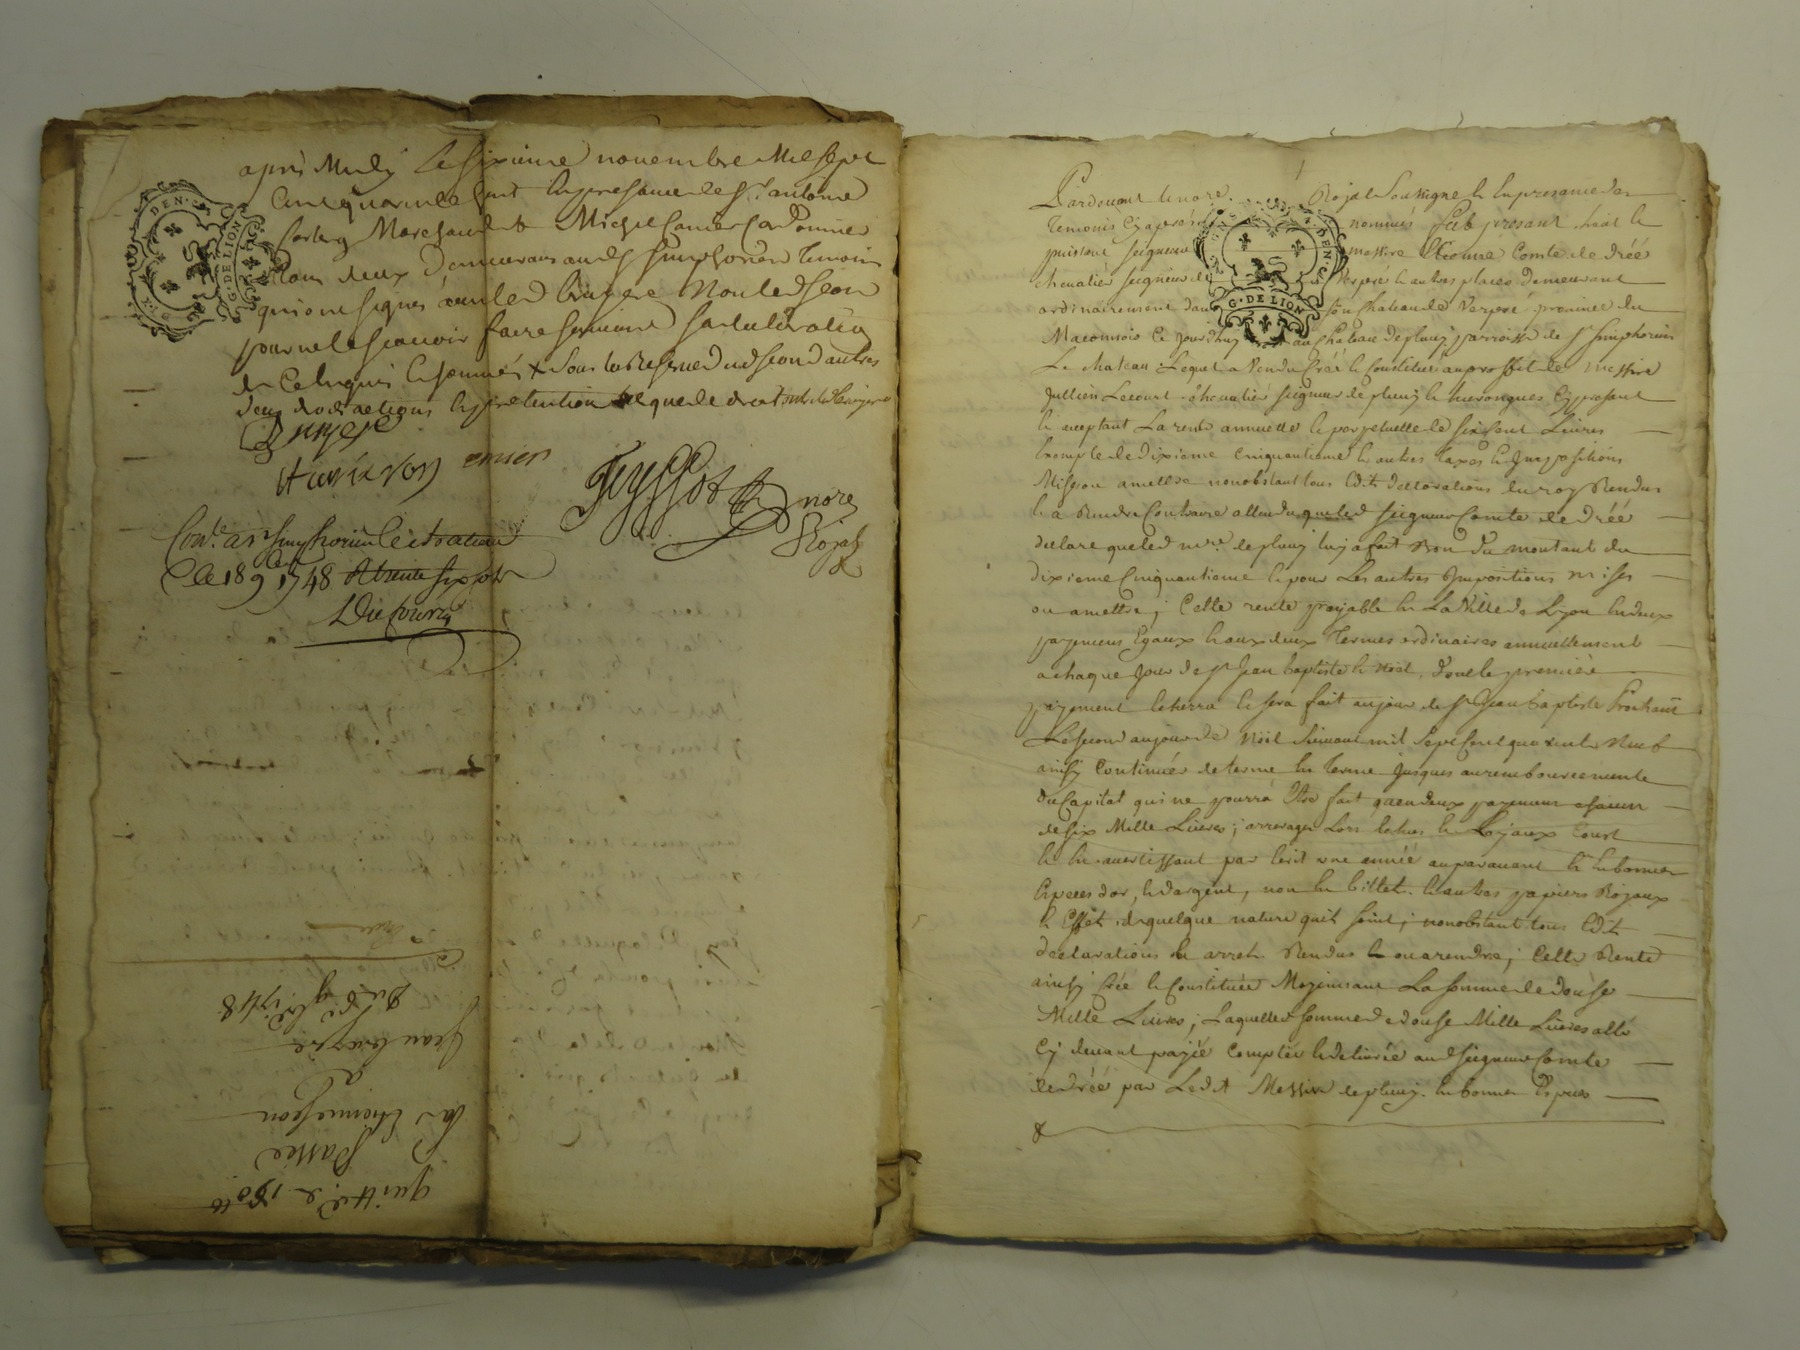 après Midy le sixieme novembre Mil sept
Cent quarante huit En presence de Sr. antoine
Marchand & Michel Cordonnier
tous deux demeurans aud St simphorien Temoins
qui ont signés avec led bruyere Non led Jean
pour ne le scavoir faire
de ce Enquis & sommés x sous la Reserve dud Jean d'autres
deux droits actions & pretention
Bruyere
Teyssot
nore
Royal
Con.lé a St simphorien le chateau
le 18 9bre 1748 R trente six sols
Dufournel
quittce de 150 lt
Passée
Par Jean
a
Jean bruyere
Du 6 9bre 1748
G. DE LION
G. DE LION
Pardevant le nore. Royal soussigné & En presence des
Temoins Cy apres nommés fut present haut &
puissant seigneur messire Etienne Comte de Dréé
chevalier seigneur de Verpré & autres places demeurant
ordinairement dans son chateau de Verpré province du
Maconnois Ce jourdhuy au chateau de pluvy parroisse de St simphorien
Le chateau Lequel a Vendu Créé & Constitué au proffit de Messire
Jullien Lecourt chevalier seigneur de pluvy & Cy present
& acceptant La rente annuelle & perpetuelle de six Cent Livres
Exempte de dixieme Cinquantieme & autres taxes & Impositions
Mises ou a mettre nonobstant tous Edits declarations du roy Rendus
& a Rendre Contraire attendu que led seigneur Comte de Dréé
declare que led mre. de pluvy luy a fait Bon du montant du
dixieme Cinquantieme & pour Les autres Impositions mises
ou a mettre; Cette rente payable En La Ville de Lyon En deux
payemens Egaux & aux deux Termes ordinaires annuellement
a chaque Jour de St Jean baptiste & Noel, dont le premier
payement Echerra & sera fait au jour de St Jean baptiste Prochain
Le second au jour de Noel suivant mil sept Cent quarante Neuf
ainsy Continuer de terme En Terme Jusques au remboursement
du Capital qui ne pourra Etre fait qu'en deux payemens chacun
de six Mille Livres; arrerages Lors Echus & Loyaux Coust
& En avertissant par Ecrit une année auparavant & En bonnes
Especes d'or, & d'argent, non En billets & autres papiers Royaux
& Effet de quelque nature quil soint; nonobstant tous Edits
declarations & arrets Rendus ou a rendre; Cette Rente
ainsy Créé & Constituée Moyennant La somme de Douse
Mille Livres; Laquelle somme de douse Mille Livres a été
Cy devant payée Comptée & delivrée aud seigneur Comte
de Dréé par Ledit Messire de pluvy En bonnes Especes